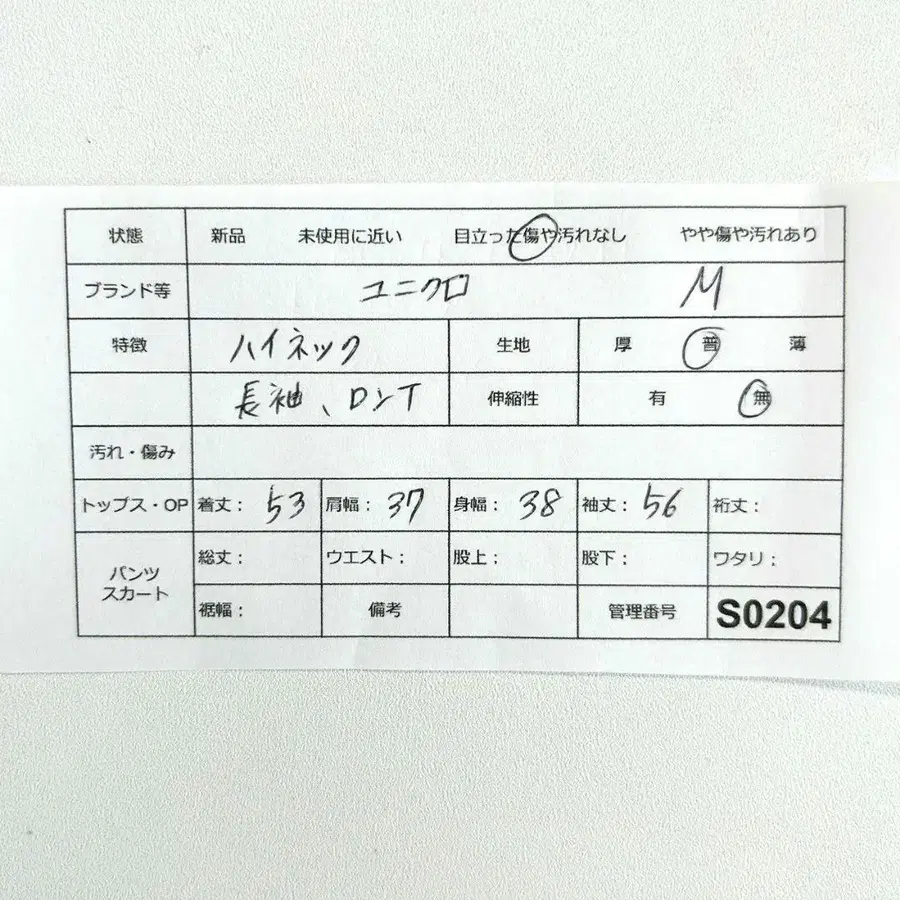 状態 新品 未使用に近い 目立った傷や汚れなし やや傷や汚れあり
ブランド等 ユニクロ M
特徴 ハイネック 生地 厚 普 薄
長袖、ロンT 伸縮性 有 無
汚れ・傷み
トップス・OP 着丈: 53 肩幅: 37 身幅: 38 袖丈: 56 裄丈:
パンツ スカート 総丈: ウエスト: 股上: 股下: ワタリ:
裾幅: 備考 管理番号 S0204